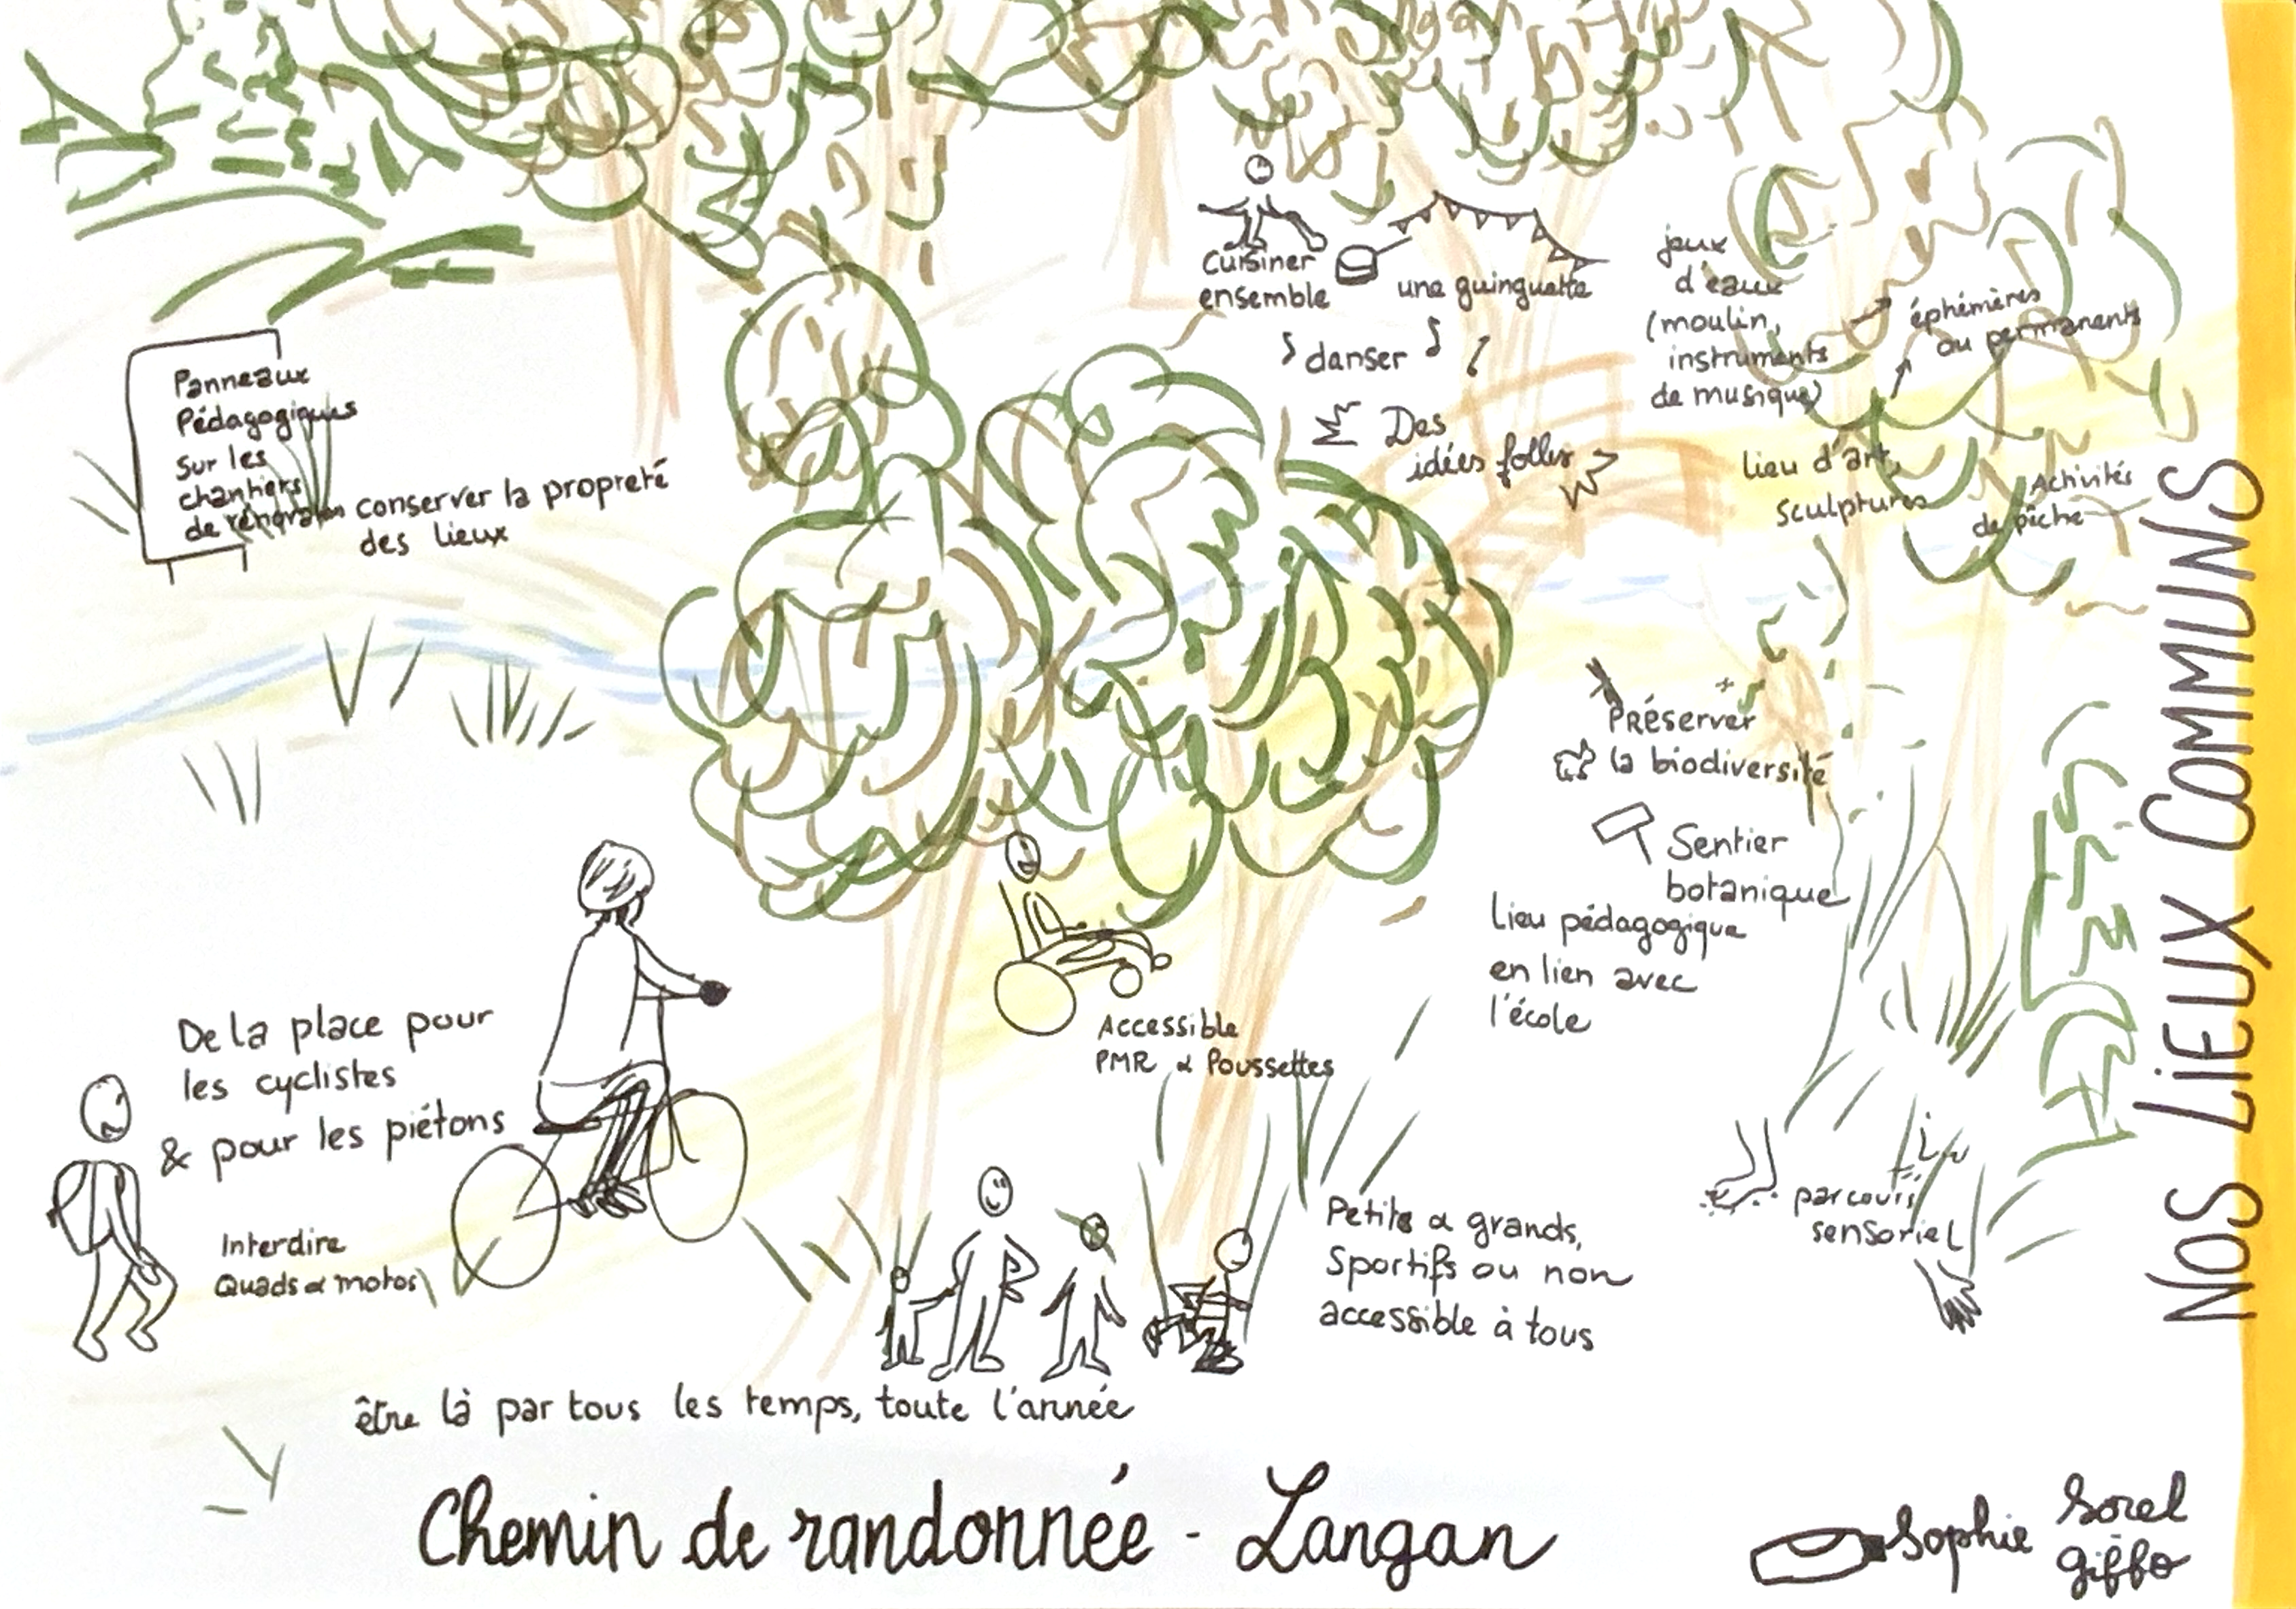 Cuisiner
ensemble
une guinguette
danser
Des
idées folles
jeux
d'eaux
(moulin,
instruments
de musique)
éphémères
ou permanents
lieu d'art,
sculptures
Activités
de pêche
Panneaux
Pédagogiques
sur les
chantiers
de
conserver la propreté
des lieux
PRéserver
la biodiversité
Sentier
botanique
Lieu pédagogique
en lien avec
l'école
De la place pour
les cyclistes
& pour les piétons
Interdire
Quads & motos
Accessible
PMR & Poussettes
Petits & grands,
Sportifs ou non
accessible à tous
parcours
sensoriel
être là par tous les temps, toute l'année
Chemin de randonnée - Langan
Sophie Sorel
Giffo
NOS LiEUX COMMUNS